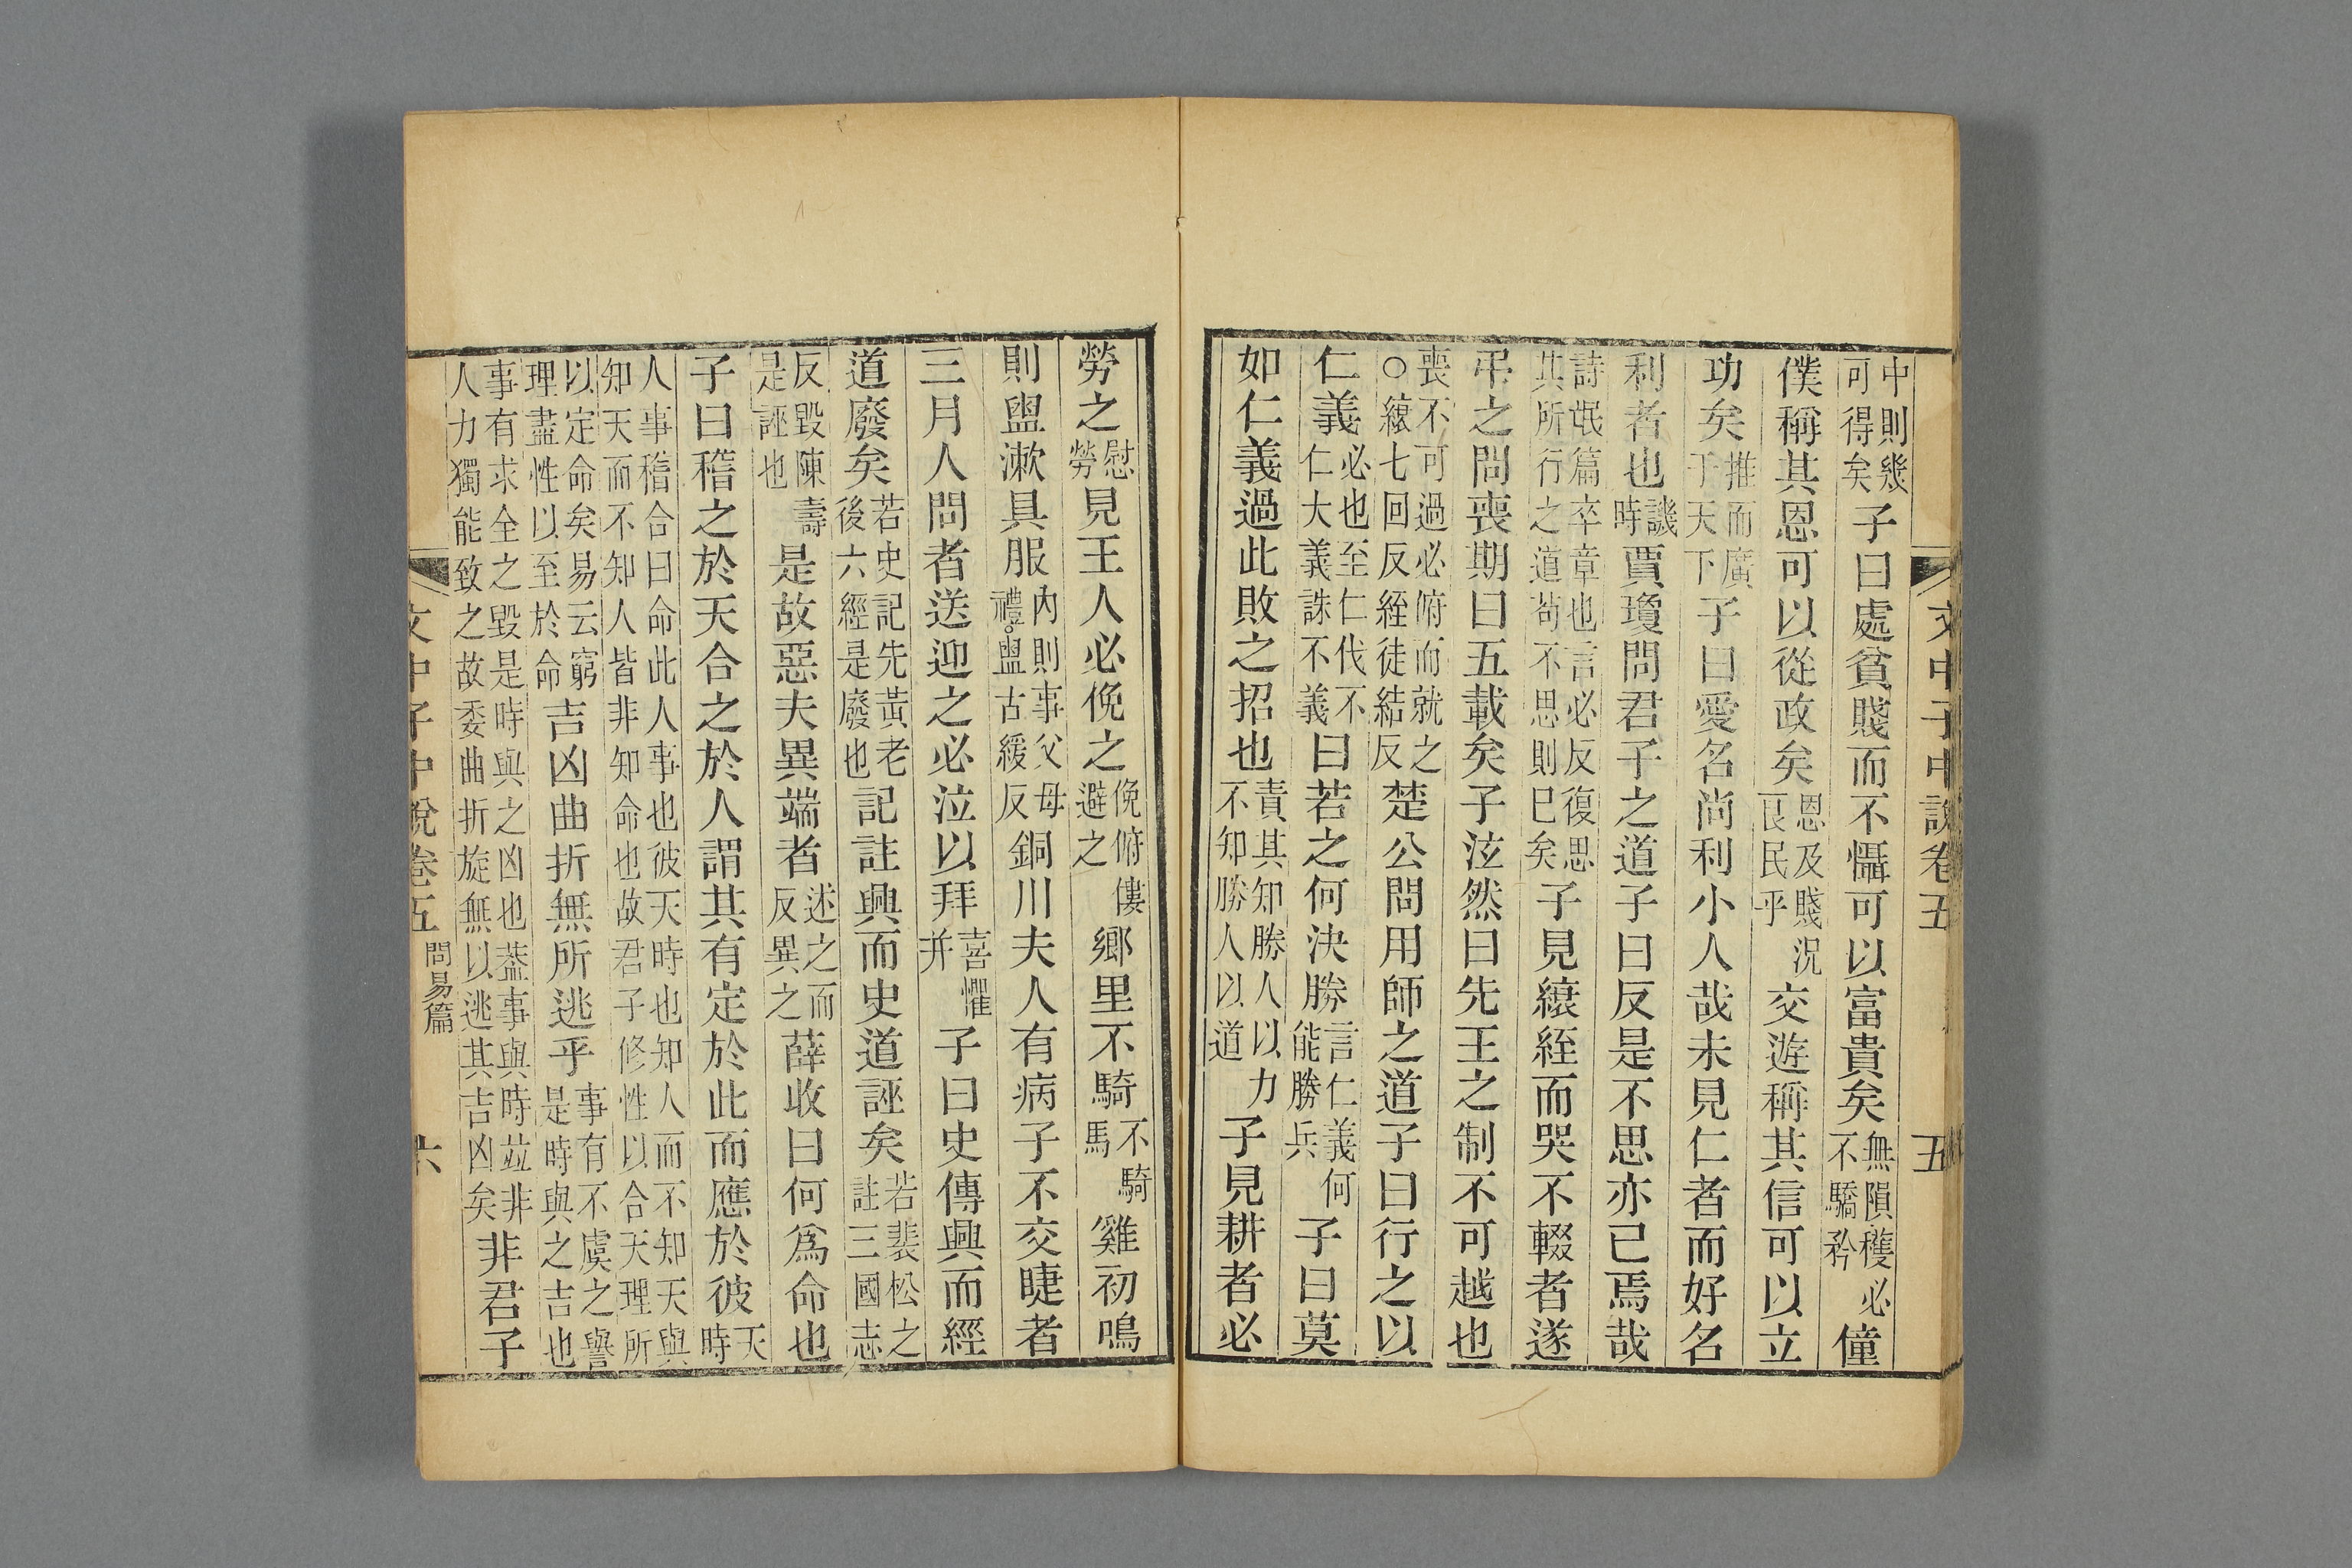 文中子中說卷五 五
中則幾可得矣子曰處貧賤而不懾可以富貴矣無隕穫必不驕矜僮
僕稱其恩可以從政矣恩及賤況民乎交遊稱其信可以立
功矣推而廣于天下子曰愛名尚利小人哉未見仁者而好名
利者也譏時賈瓊問君子之道子曰反是不思亦已焉哉
詩氓篇卒章也言必反復思其所行之道苟不思則已矣子見縗絰而哭不輟者遂
弔之問喪期曰五載矣子泫然曰先王之制不可越也
喪不可過必俯而就之○縗七回反絰徒結反楚公問用師之道子曰行之以
仁義必也至仁伐不仁大義誅不義曰若之何決勝言仁義何能勝兵子曰莫
如仁義過此敗之招也責其知勝人以力不知勝人以道子見耕者必
勞之慰勞見王人必俛之俛俯僂避之鄉里不騎不騎馬雞初鳴
則盥漱具服內則事父母禮○盥古緩反銅川夫人有病子不交睫者
三月人問者送迎之必泣以拜喜懼并子曰史傳興而經
道廢矣若史記先黃老後六經是廢也記註興而史道誣矣若裴松之註三國志
反毀陳壽是誣也是故惡夫異端者述之而反異之薛收曰何爲命也
子曰稽之於天合之於人謂其有定於此而應於彼天時
人事稽合曰命此人事也彼天時也知人而不知天與知天而不知人皆非知命也故君子修性以合天理所
以定命矣易云窮理盡性以至於命吉凶曲折無所逃乎事有不虞之譽是時與之吉也
事有求全之毀是時與之凶也葢事與時竝非人力獨能致之故委曲折旋無以逃其吉凶矣非君子
文中子中說卷五 問易篇 六